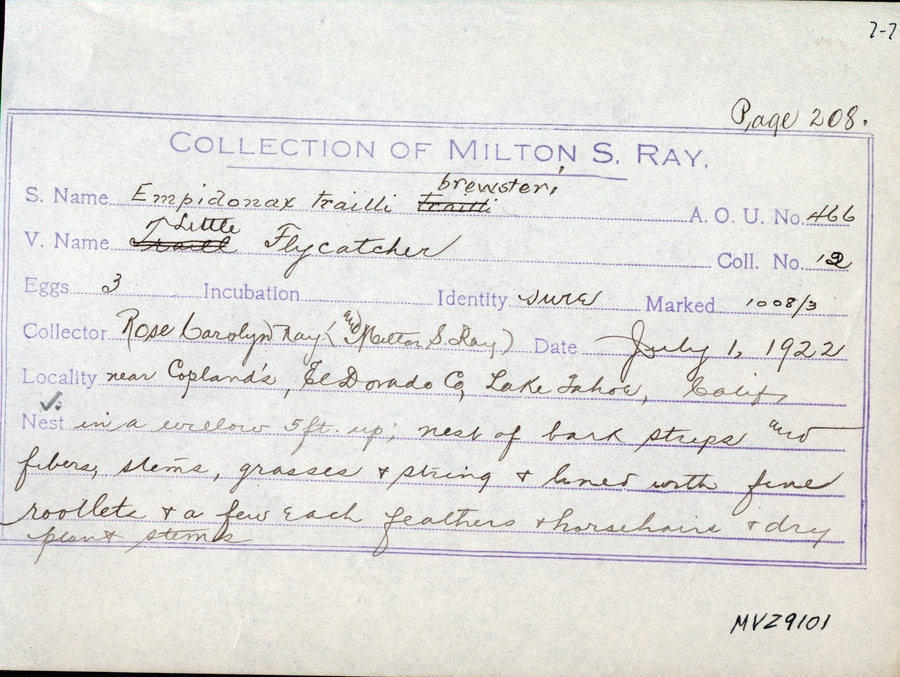 7-7
Page 208.
COLLECTION OF MILTON S. RAY.
brewsteri
S. Name Empidonax trailli trailli A. O. U. No. 466
Little
V. Name Traill Flycatcher Coll. No. 12
Eggs 3 Incubation Identity sure Marked 1008/3
Collector Rose Carolyn Ray (and Milton S. Ray) Date July 1, 1922
Locality near Copland's, El Dorado Co, Lake Tahoe, Calif
Nest in a willow 5ft. up; nest of bark strips and
fibers, stems, grasses + string + lined with fine
rootlets + a few each feathers + horsehairs + dry
plant stems
MVZ9101